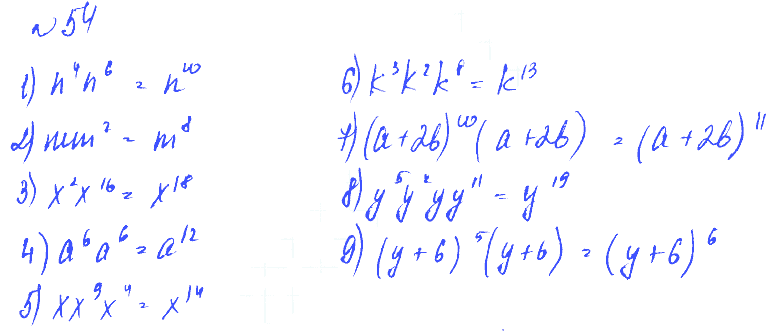 №54
1) n⁴n⁶ = n¹⁰
2) mm⁷ = m⁸
3) x²x¹⁶ = x¹⁸
4) a⁶a⁶ = a¹²
5) xx⁹x⁴ = x¹⁴
6) k³k²k⁸ = k¹³
7) (a+2b)¹⁰(a+2b) = (a+2b)¹¹
8) y⁵y²yy¹¹ = y¹⁹
9) (y+6)⁵(y+6) = (y+6)⁶